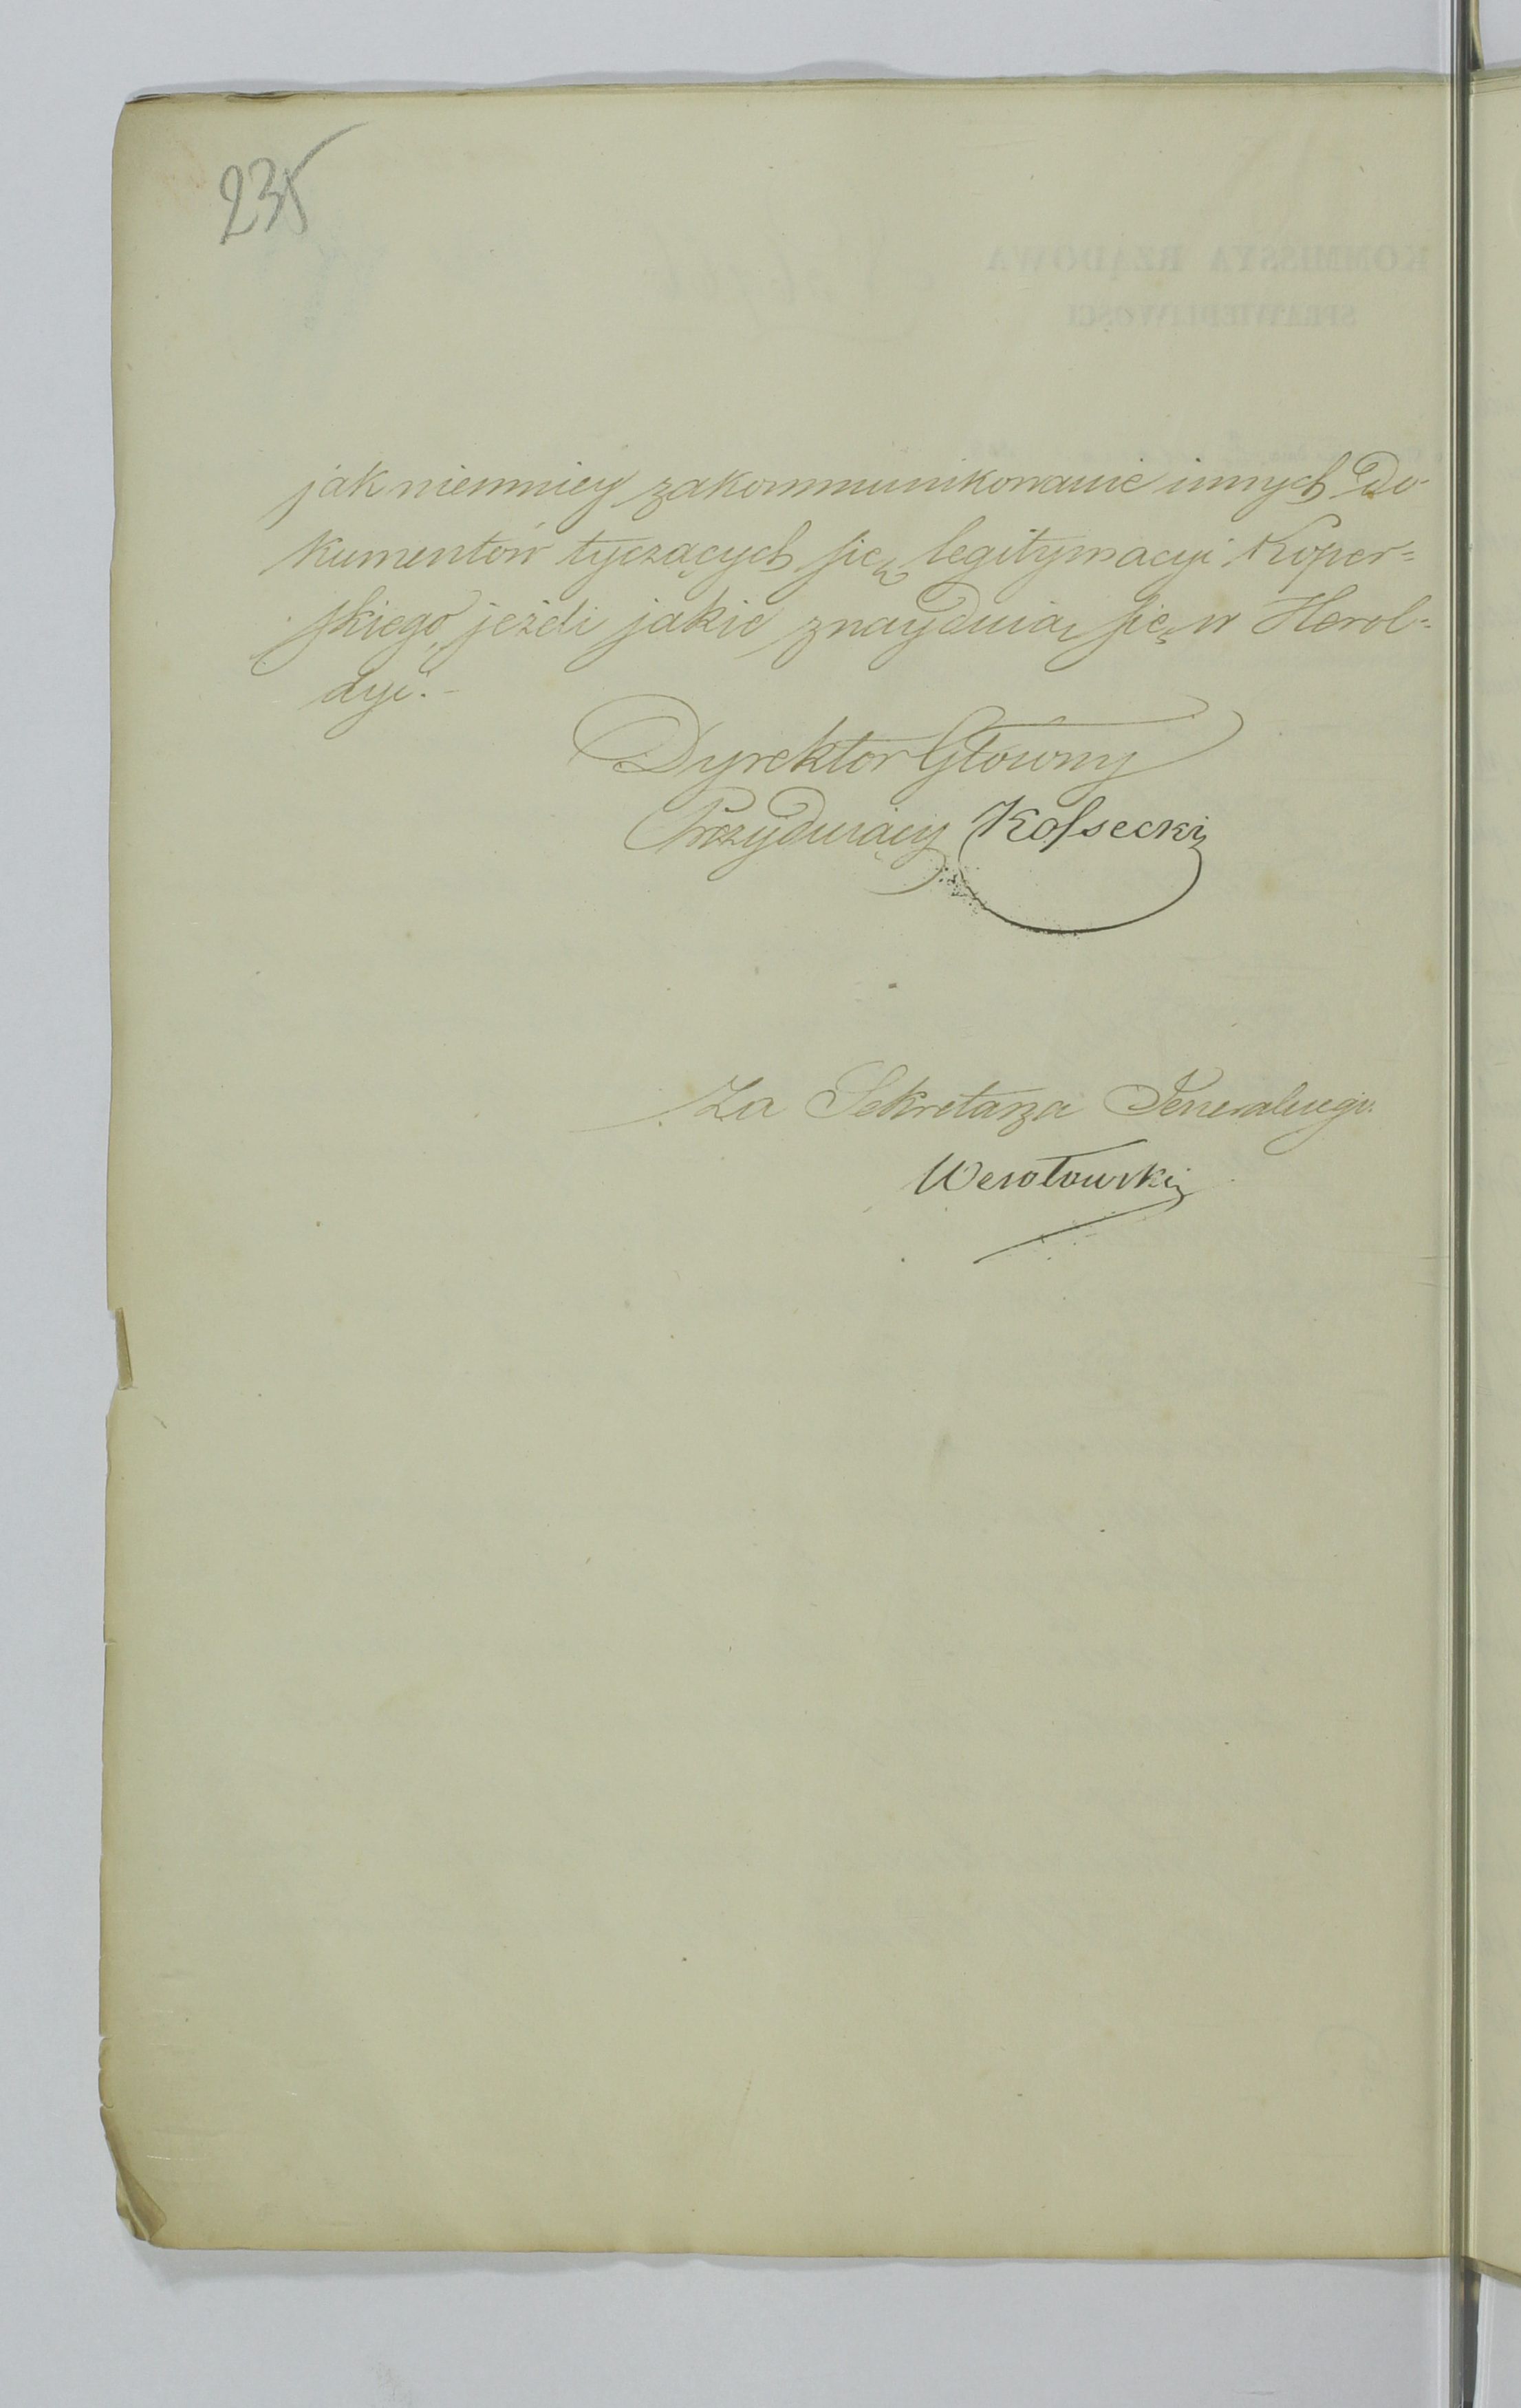 235
jak niemniey zakommunikowanie innych Do-
kumentów tyczących się legitymacyi Koper=
skiego, jeżeli jakie znayduią się w Herol=
dyi.-
Dyrektor Główny
Prezyduiący Kossecki
Za Sekretarza Jeneralnego
Wesołowski